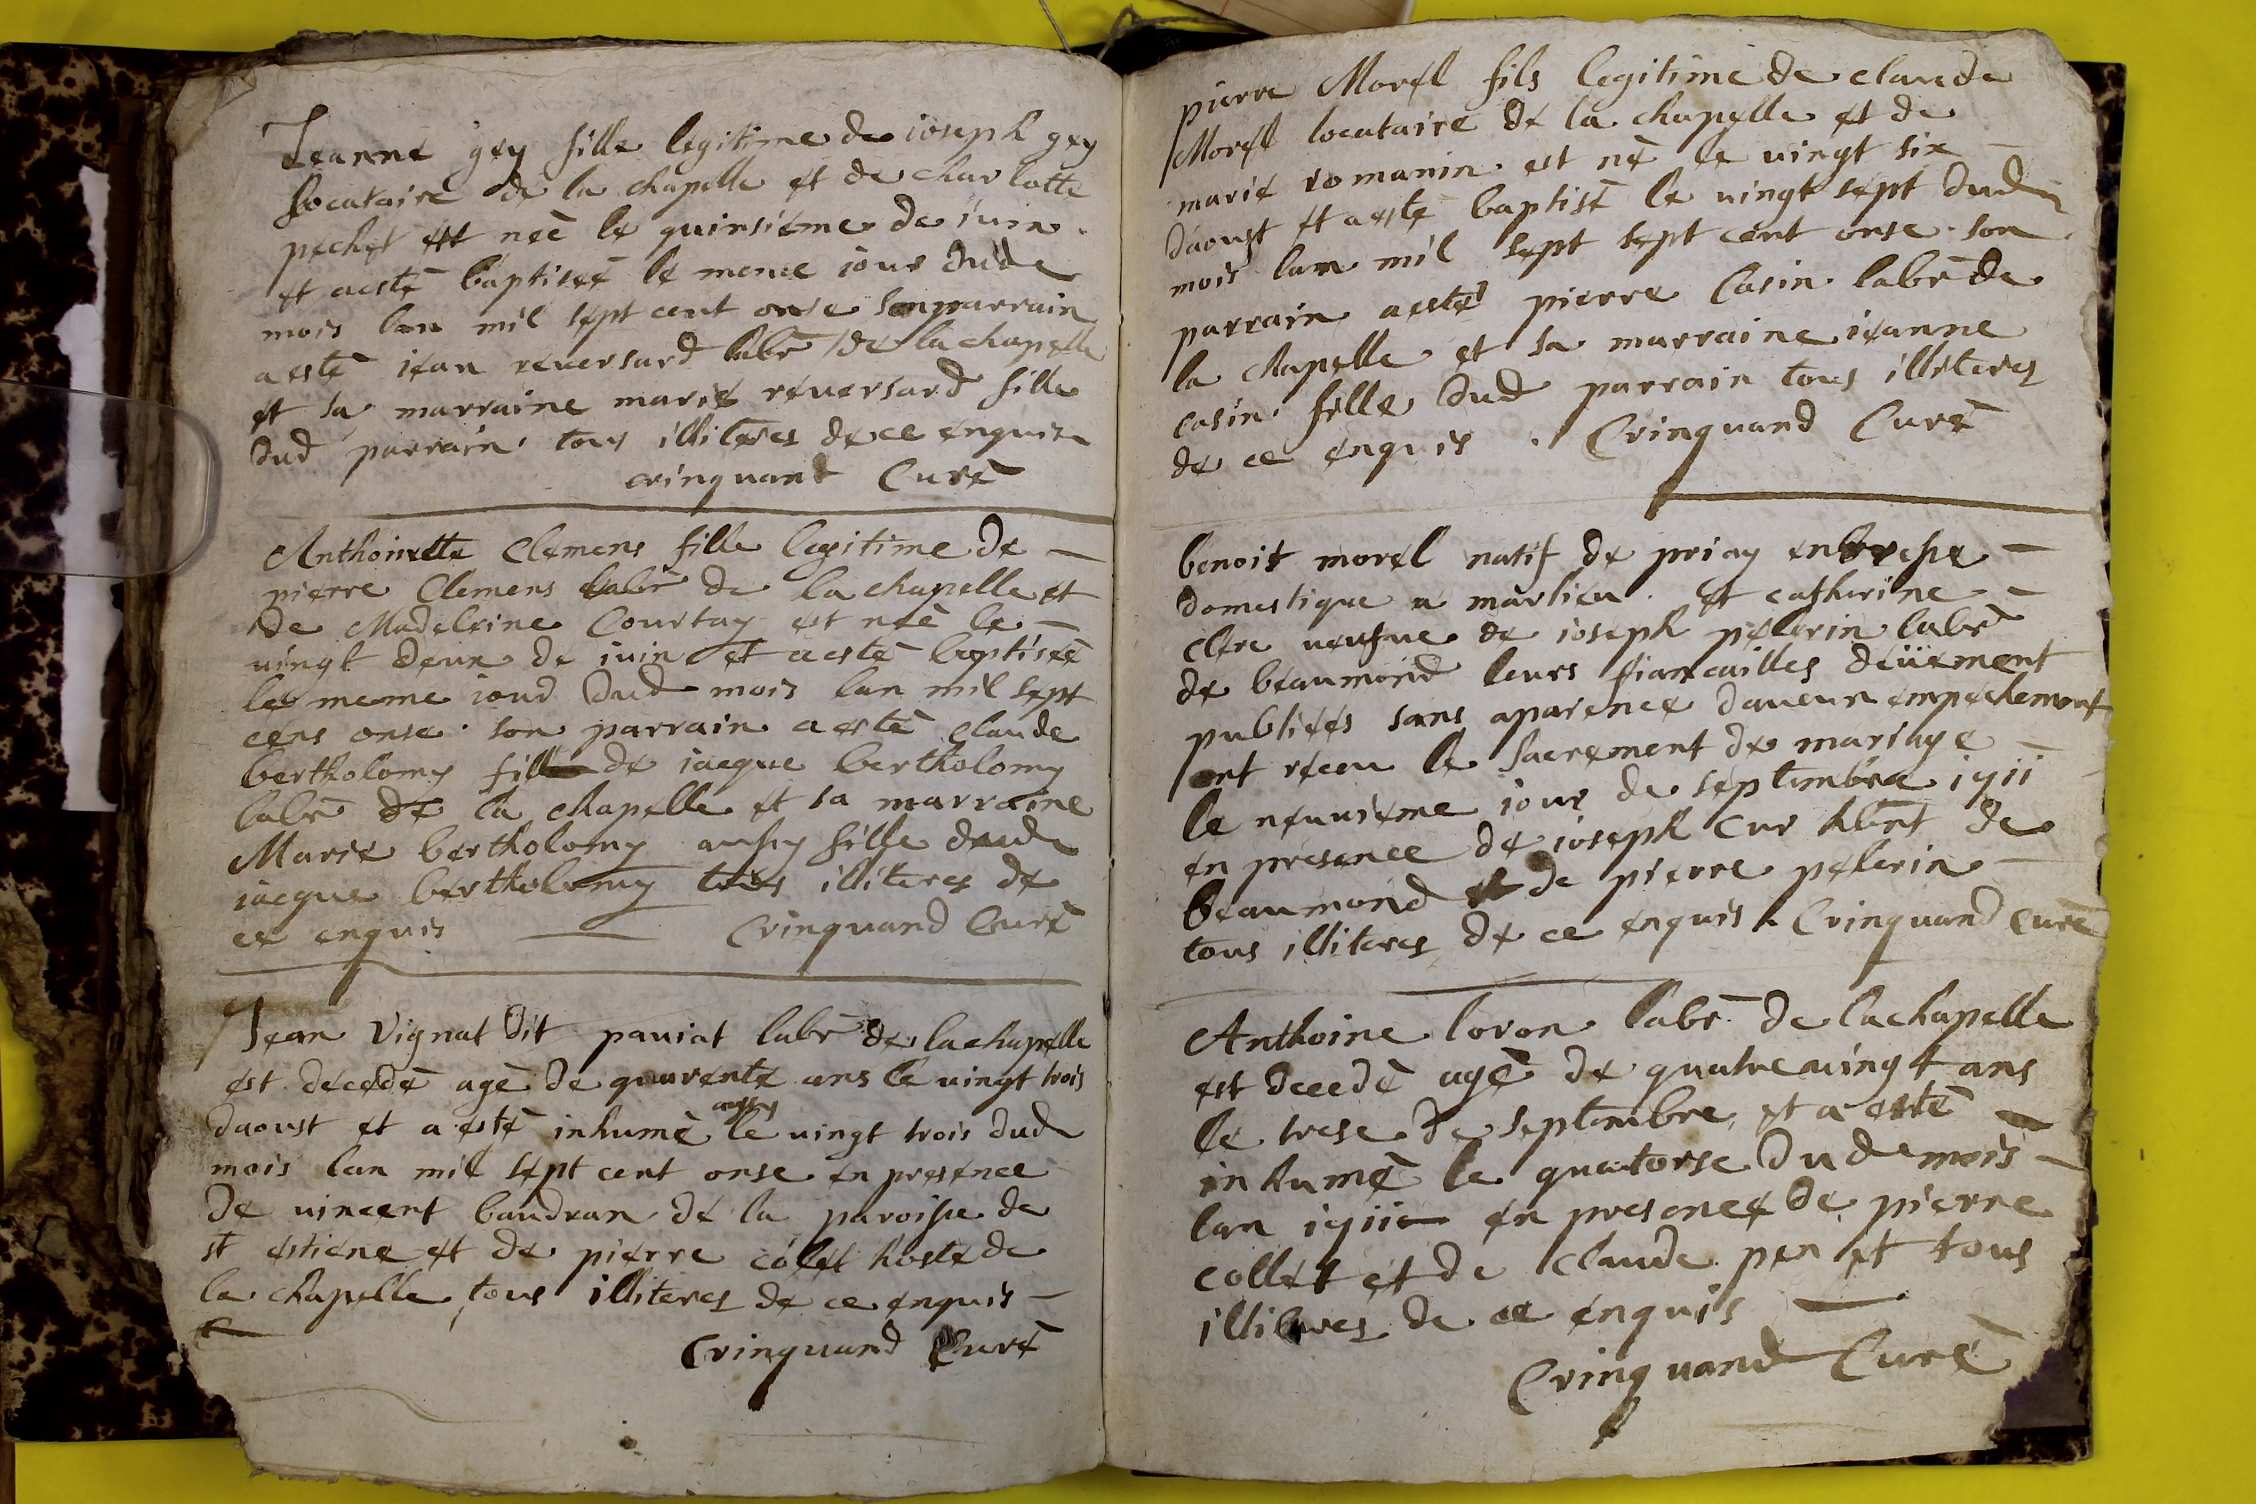 Jeanne gey fille legitime de ioseph gey
locataire de la chapelle et de charlotte
pechet est née le quinsiéme de iuin
et aesté baptiseé le meme iour dud
mois lan mil sept cent onse son parrain
aesté iean reuersard labr de lachapelle
et sa marraine marie reuersard fille
dud parrain tous illiteres de ce enquis
crinquant Curé
Anthoinette Clemens fille legitime de
pierre Clemens labr de la chapelle et
de Madeleine Courtay est née le
uingt deux de iuin et aesté baptiseé
le meme iour dud mois lan mil sept
cens onse son parrain aesté claude
bertholomy fill de iacque bertholomy
labr de la chapelle et sa marraine
Marie bertholomy aussy fille dud
iacque bertholomy tous illiteres de
ce enquis Crinquand Curé
Jean Vignat dit pauiat labr de lachapelle
est décedé agé de quarente ans le vingt trois
daoust et a esté inhumé le uingt trois dud
mois lan mil sept cent onse en presence
de uincent baudran de la paroisse de
st estiene et de pierre colet hoste de
la chapelle tous illiteres de ce enquis
Crinquand Curé
pierre Morel fils legitime de claude
Morel locataire de la chapelle et de
marie romanin est né le uingt six
daoust et aesté baptisé le uingt sept dud
mois lan mil sept sept cent onse son
parrain aesté pierre Casin labr de
la chapelle et sa marraine ieanne
casin fille dud parrain tous illiteres
de ce enquis Crinquand Curé
benoit morel natif de priay en bresse
domestique a marlieu et catherine
clere ueufue de ioseph pelerin labr
de beaumond leurs fiancailles deüement
publieés sans aparence daucun empechement
ont réceu le sacrement de mariage
le neuuiéme iour de septembre 1711
en presence de ioseph cur hbnt de
beaumond et de pierre pelerin
tous illiteres de ce enquis Crinquand Curé
Anthoine loron labr de lachapelle
est decedé agé de quatreuingt ans
le trese de septembre et a esté
inhumé le quatorse dud mois
lan 1711 en presence de pierre
collet et de claude pen et tous
illiteres de ce enquis
Crinquand Curé